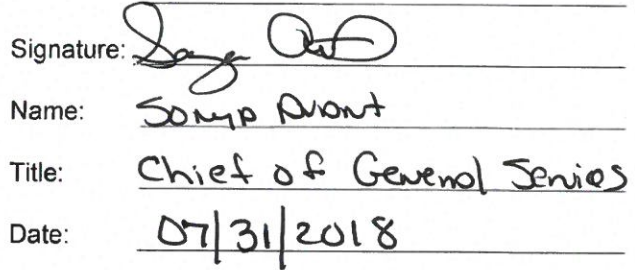 Signature:
Name: Sonya Avant
Title: Chief of General Services
Date: 07/31/2018